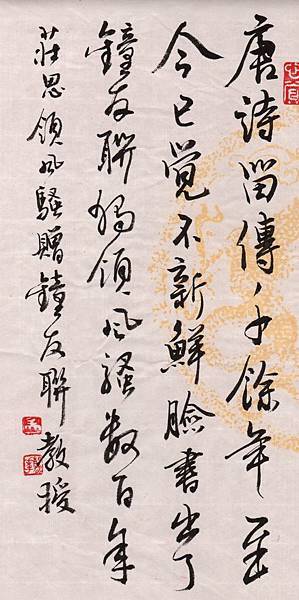 唐詩留傳〻千餘年至
今已覺不新鮮臉書出了
鐘友聯獨領風騷數百年
莊思領風騷贈鐘友聯教授